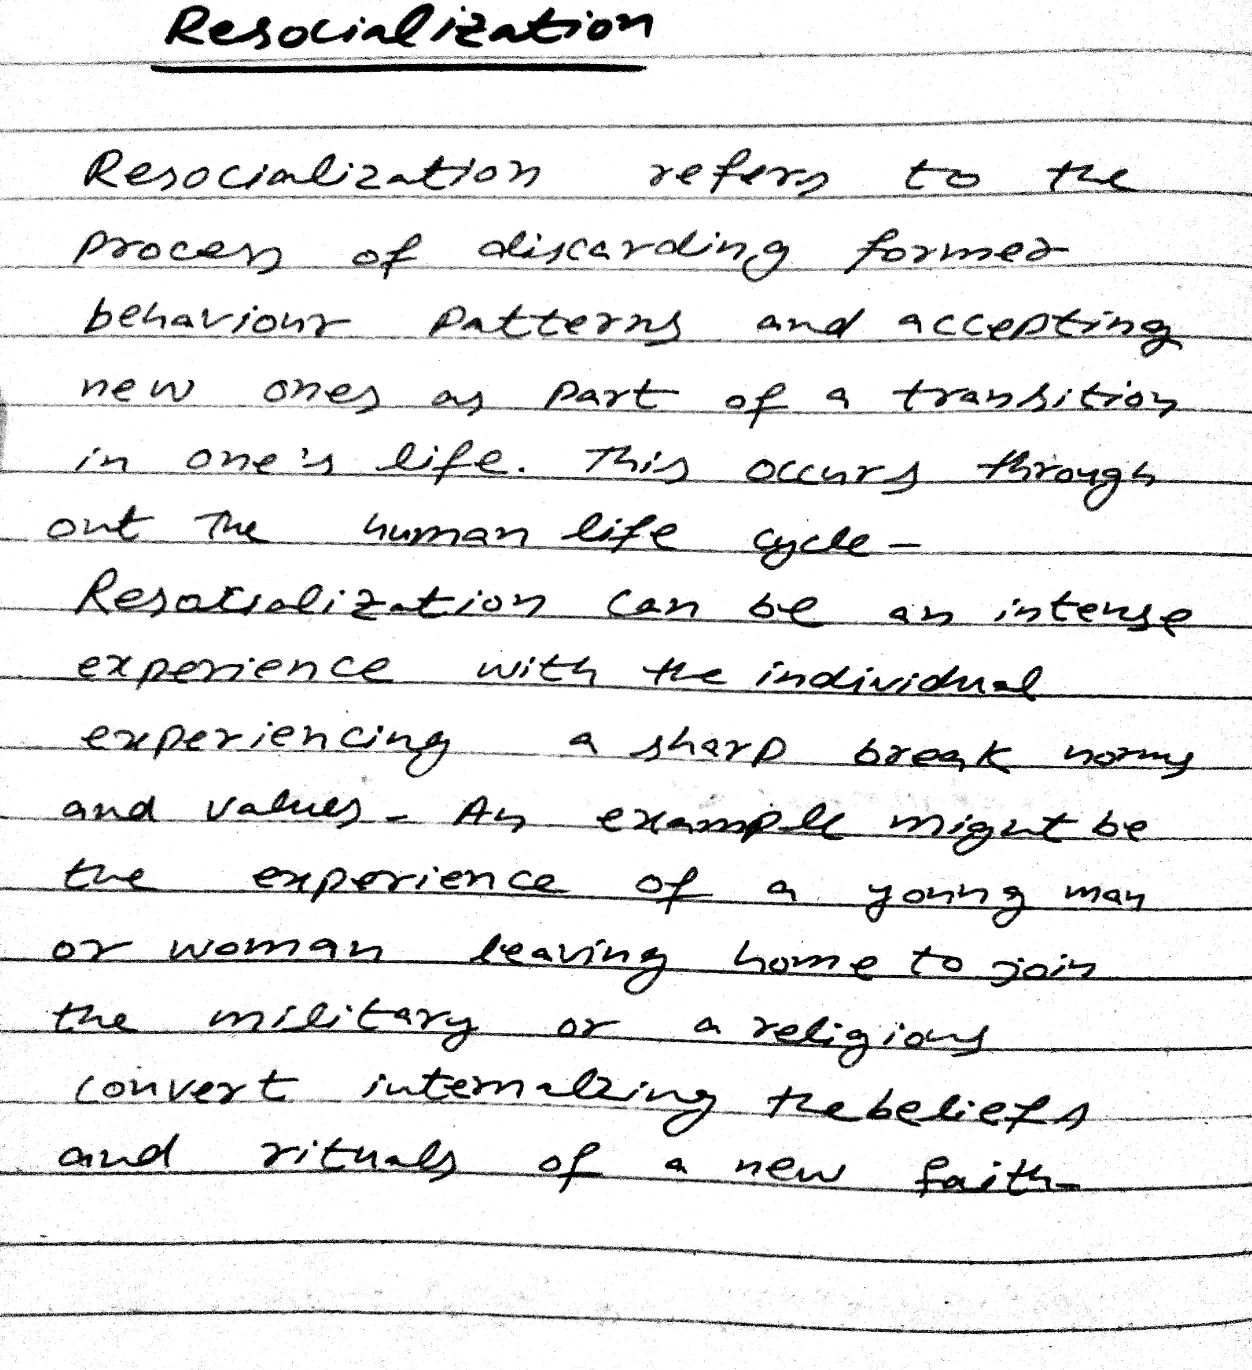 Resocialization
Resocialization refers to the
process of discarding former
behaviour patterns and accepting
new ones as part of a transition
in one's life. This occurs through
out The human life cycle -
Resocialization can be an intense
experience with the individual
experiencing a sharp break norms
and values - An example might be
the experience of a young man
or woman leaving home to join
the military or a religious
convert internalzing the beliefs
and rituals of a new faith -